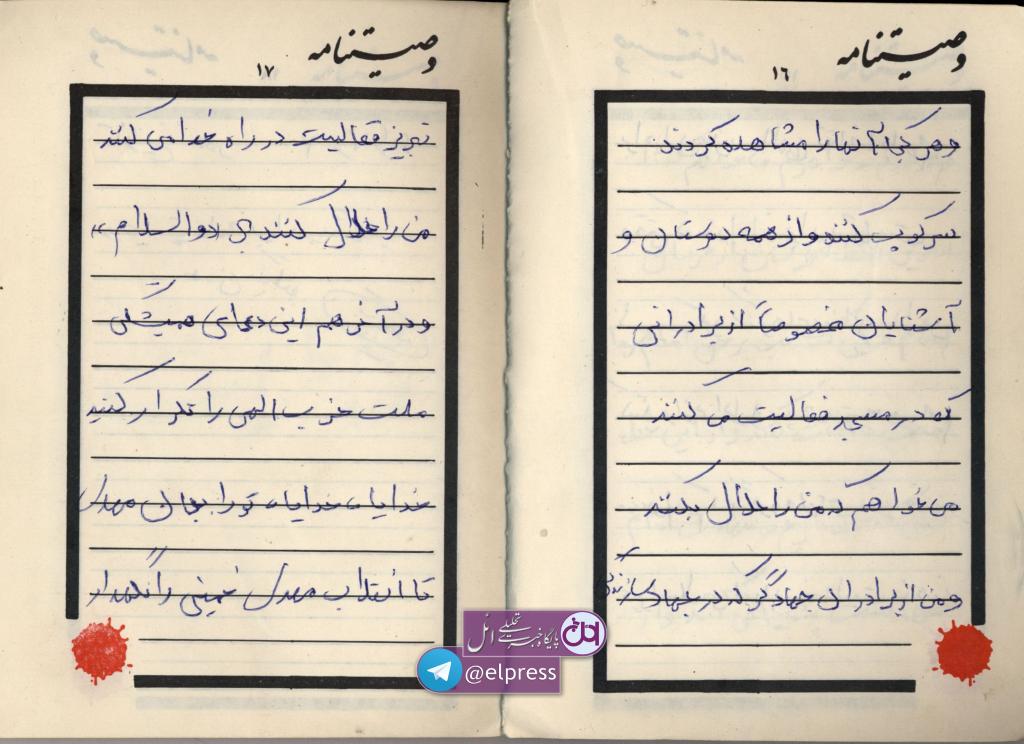 وصیتنامه
۱۶
و هر کجا آنها را مشاهده کردند
سرکوب کنند و از همه دوستان و
آشنایان خصوصاً از برادرانی
که در مسجد فعالیت می کنند
می خواهم که من را حلال بکنند
و من از برادران جهادگر که در جهاد سازندگی
وصیتنامه
۱۷
تبریز فعالیت در راه خدا می کنند
من را حلال کنند
والسلام
و در آخر هم این دعای همیشگی
ملت حزب الهی را تکرار کنید
خدایا، خدایا، تو را بجان مهدی
تا انقلاب مهدی خمینی را نگهدار
پایگاه خبری تحلیلی ائل
@elpress